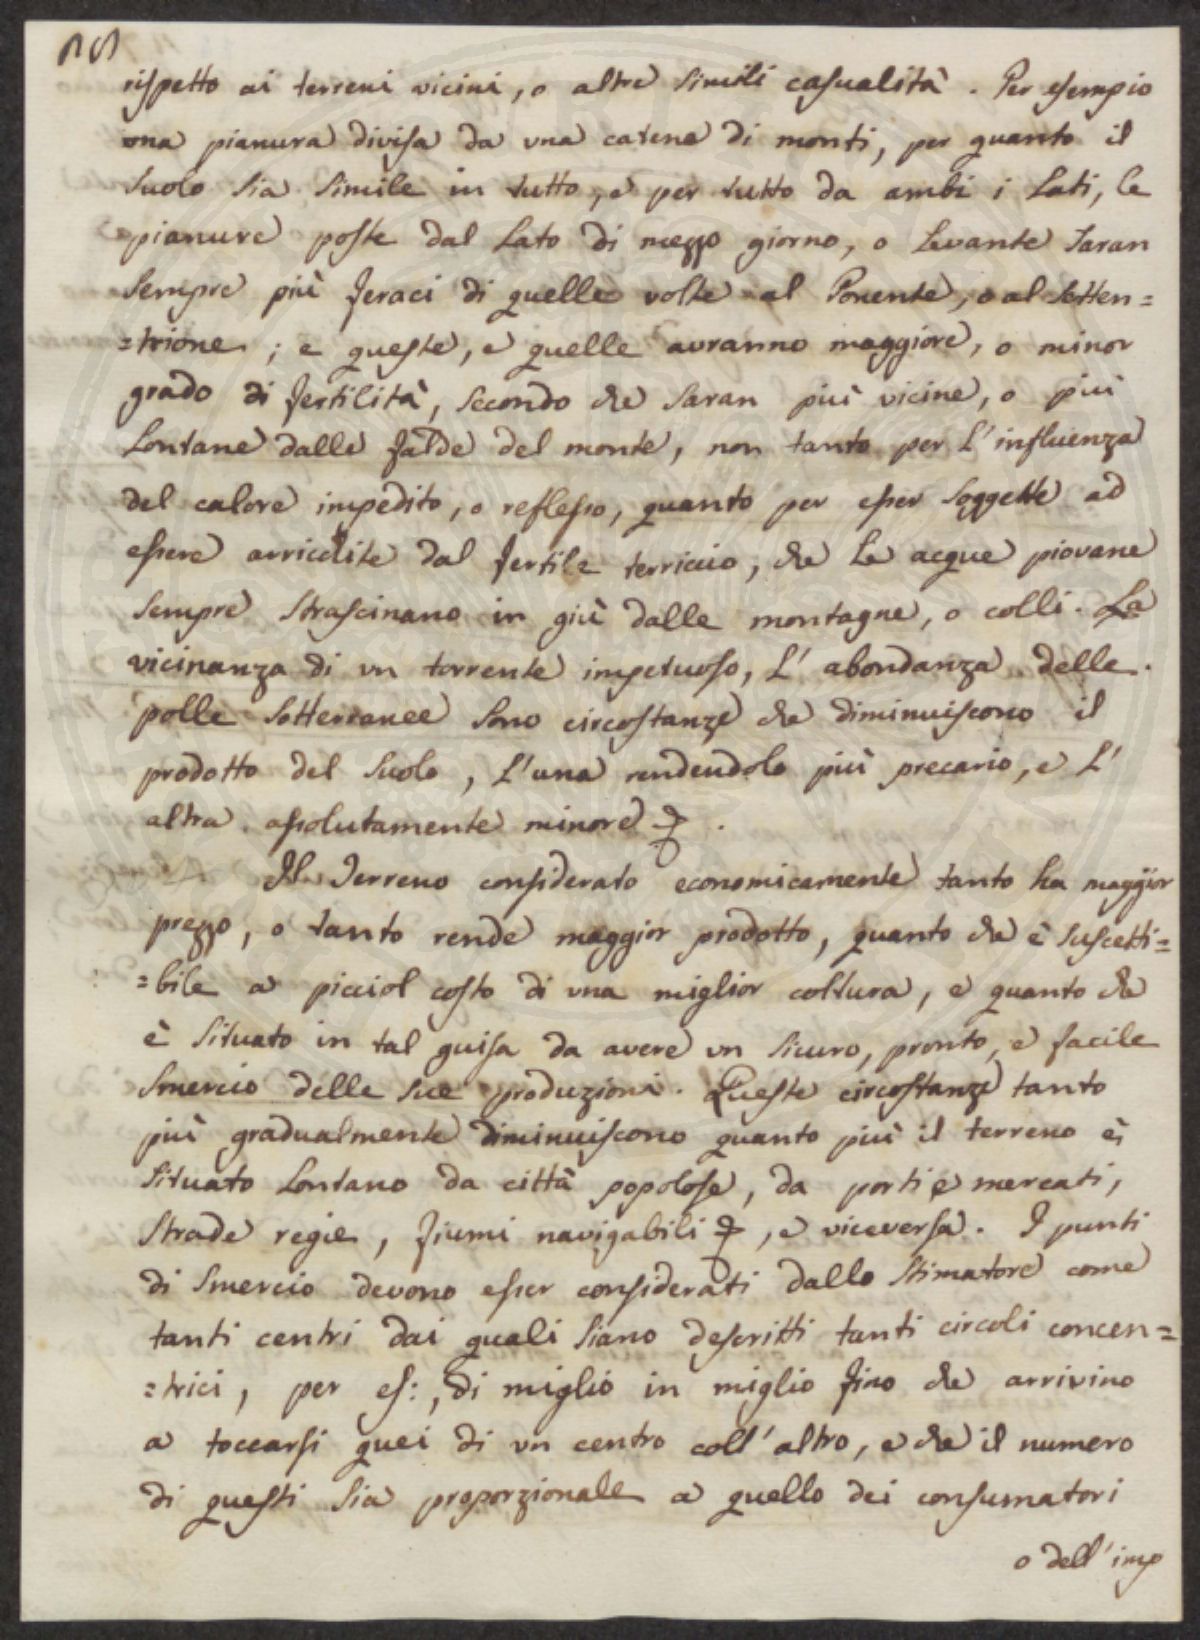 rispetto ai terreni vicini, o altre simili casualità. Per esempio
una pianura divisa da una catena di monti, per quanto il
suolo sia simile in tutto, e per tutto da ambi i Lati, le
pianure poste dal Lato di mezzo giorno, o Levante saran
sempre più feraci di quelle volte al Ponente, o al Setten=
=trione; e queste, e quelle avranno maggiore, o minor
grado di fertilità, secondo che saran più vicine, o più
Lontane dalle falde del monte, non tanto per L'influenza
del calore impedito, o reflesso, quanto per esser soggette ad
essere arricchite dal fertile terriccio, che Le acque piovane
sempre strascinano in giù dalle montagne, o colli. La
vicinanza di un torrente impetuoso, L'abondanza delle
polle sotterranee sono circostanze che diminuiscono il
prodotto del suolo, L'una rendendolo più precario, e L'
altra assolutamente minore &.
Il Terreno considerato economicamente tanto ha maggior
prezzo, o tanto rende maggior prodotto, quanto che è suscetti=
=bile a picciol costo di una miglior coltura, e quanto che
è situato in tal guisa da avere un sicuro, pronto, e facile
smercio delle sue produzioni. Queste circostanze tanto
più gradualmente diminuiscono quanto più il terreno è
situato Lontano da città popolose, da porti e mercati,
strade regie, fiumi navigabili &, e viceversa. I punti
di smercio devono esser considerati dallo stimatore come
tanti centri dai quali siano descritti tanti circoli concen=
=trici, per es:, di miglio in miglio fino che arrivino
a toccarsi quei di un centro coll'altro, e che il numero
di questi sia proporzionale a quello dei consumatori
o dell'imp